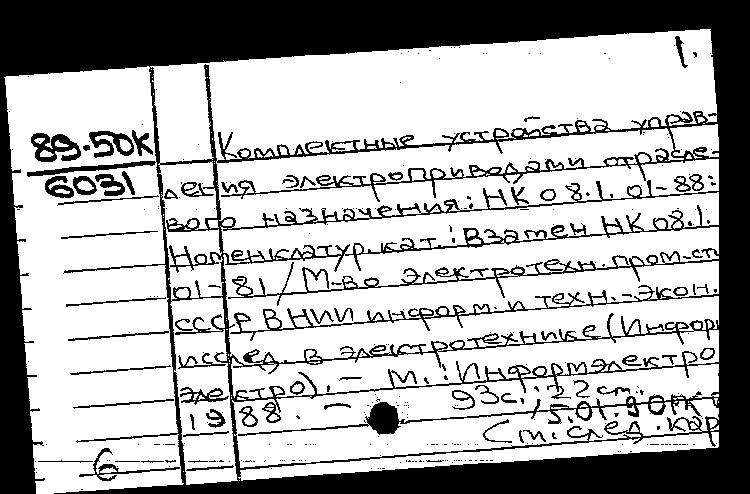 1.
89-50К
6031
Комплектные устройства управ-
ления электроприводами отрасле-
вого назначения: НК 08.1.01-88:
Номенклатур. кат.: Взамен НК 08.1.
01-81 / М-во электротехн. пром-сти
СССР, ВНИИ информ. и техн.-экон.
исслед. в электротехнике (Информ
электро). - М.: Информэлектро
1988. - 93с.; 22 см.
15.01.90 ПК
См. след. кар
6